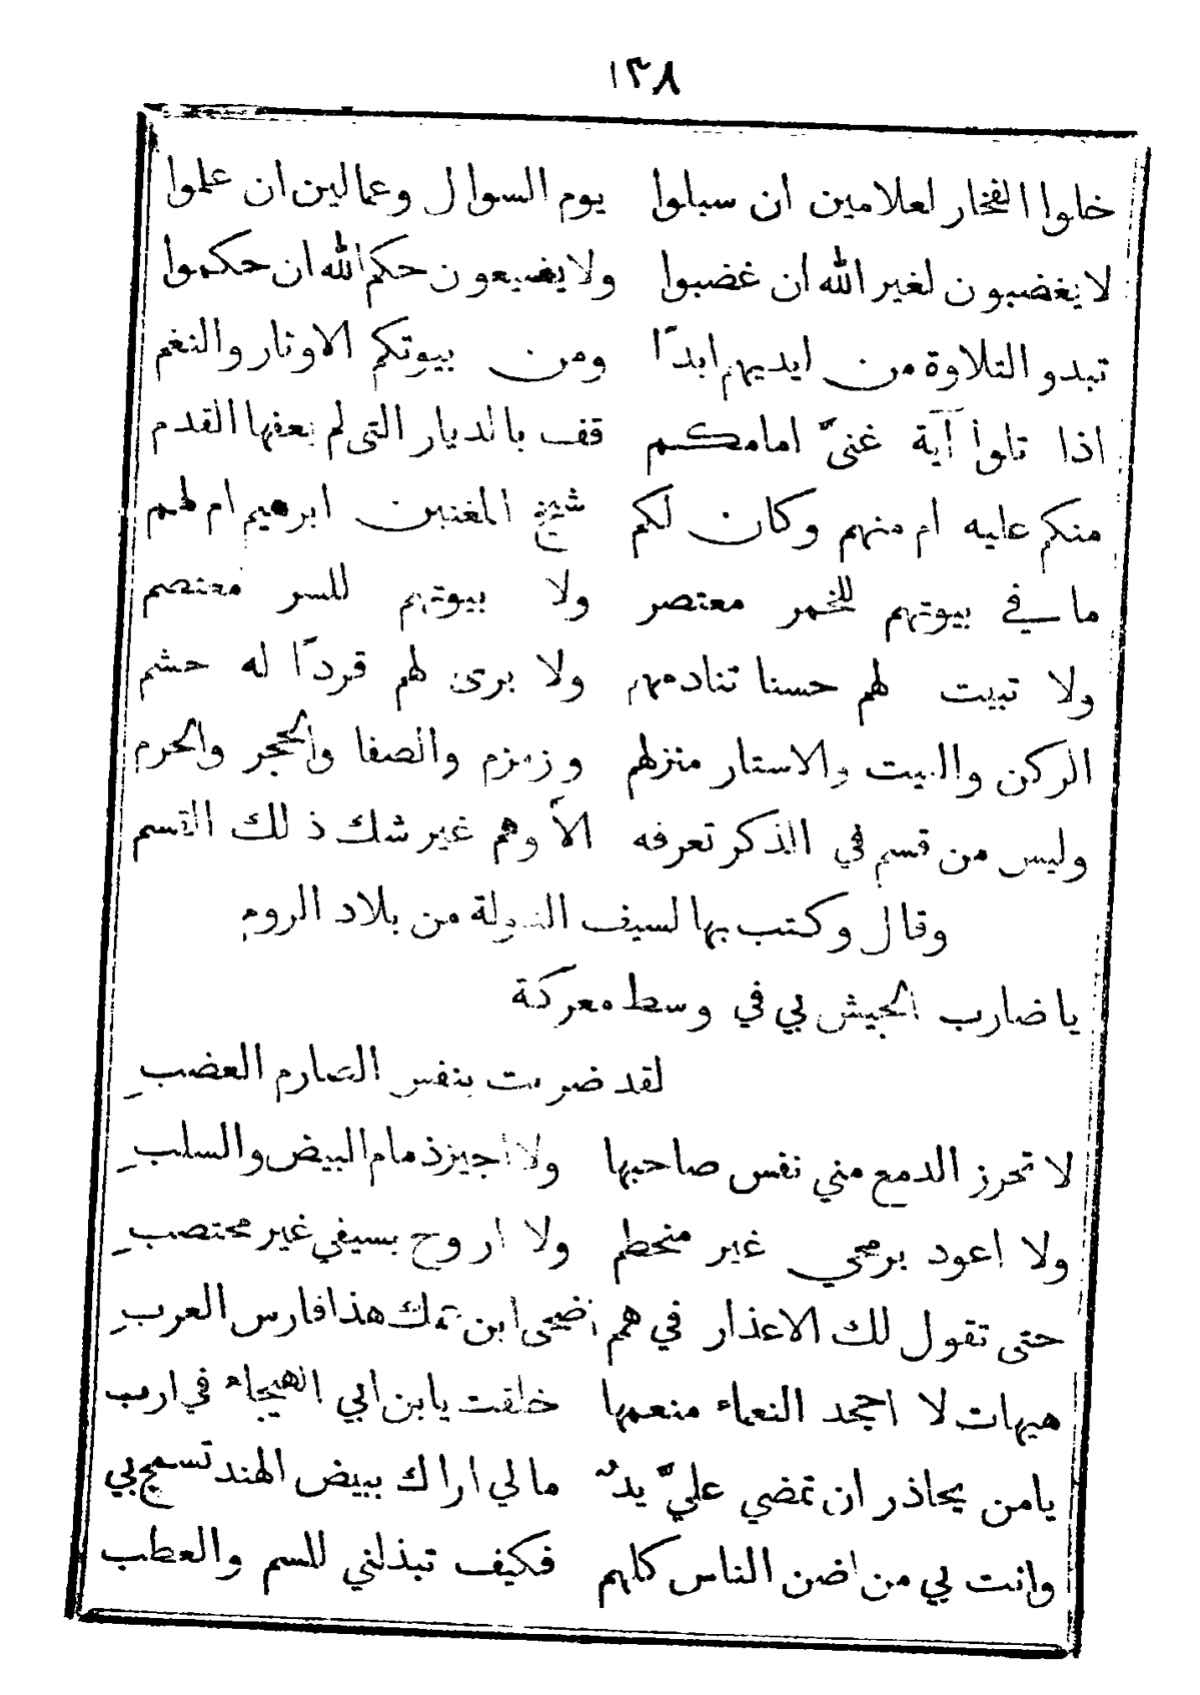 ١٣٨
خلوا الفخار لعلامين ان سيلوا يوم السوال وعمالين ان علموا
لا يغضبون لغير الله ان غضبوا ولا يضيعون حكم الله ان حكموا
تبدو التلاوة من ايديهم ابدًا ومن بيوتكم الاوتار والنغم
اذا تلوا آية غنىّ امامكم قف بالديار التى لم يعفها القدم
منكم عليه ام منهم وكان لكم شيخ المغنين ابرهيم ام لهم
ما في بيوتهم للخمر معتصر ولا بيوتهم للسر معتصم
ولا تبيت لهم حسنا تنادمهم ولا يرى لهم قردًا له حشم
الركن والبيت والاستار منزلهم وزمزم والصفا والحجر والحرم
وليس من قسم في الذكر تعرفه الاّ وهم غير شك ذلك القسم
وقال وكتب بها لسيف الدولة من بلاد الروم
يا ضارب الجيش بي في وسط معركة
لقد ضربت بنفس الصارم العضبِ
لا تحرز الدمع مني نفس صاحبها ولا اجيز ذمام البيض والسلبِ
ولا اعود برمحي غير منحطم ولا اروح بسيفي غير مختصبِ
حتى تقول لك الاعذار في همم اضحى ابن عمك هذا فارس العربِ
هيهات لا اجحد النعماء منعمها خلقت يابن ابي الهيجاء في ارب
يامن يحاذر ان تمضي عليّ يدٌ مالي اراك ببيض الهند تسمح بي
وانت لي من اضن الناس كلهم فكيف تبذلني للسم والعطب